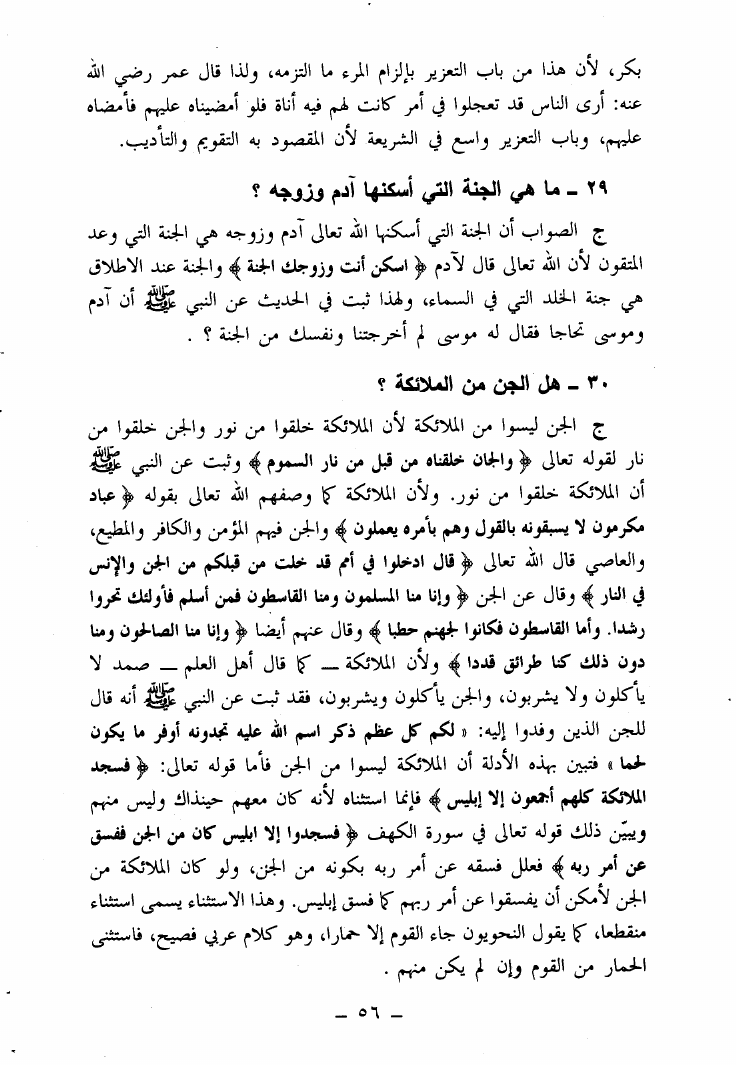 بكر، لأن هذا من باب التعزير بإلزام المرء ما التزمه، ولذا قال عمر رضي الله
عنه: أرى الناس قد تعجلوا في أمر كانت لهم فيه أناة فلو أمضيناه عليهم فأمضاه
عليهم، وباب التعزير واسع في الشريعة لأن المقصود به التقويم والتأديب.
٢٩ ـ ما هي الجنة التي أسكنها آدم وزوجه ؟
ج الصواب أن الجنة التي أسكنها الله تعالى آدم وزوجه هي الجنة التي وعد
المتقون لأن الله تعالى قال لآدم ﴿ اسكن أنت وزوجك الجنة ﴾ والجنة عند الاطلاق
هي جنة الخلد التي في السماء، ولهذا ثبت في الحديث عن النبي ﷺ أن آدم
وموسى تحاجا فقال له موسى لم أخرجتنا ونفسك من الجنة ؟ .
٣٠ ـ هل الجن من الملائكة ؟
ج الجن ليسوا من الملائكة لأن الملائكة خلقوا من نور والجن خلقوا من
نار لقوله تعالى ﴿ والجان خلقناه من قبل من نار السموم ﴾ وثبت عن النبي ﷺ
أن الملائكة خلقوا من نور. ولأن الملائكة كما وصفهم الله تعالى بقوله ﴿ عباد
مكرمون لا يسبقونه بالقول وهم بأمره يعملون ﴾ والجن فيهم المؤمن والكافر والمطيع،
والعاصي قال الله تعالى ﴿ قال ادخلوا في أمم قد خلت من قبلكم من الجن والإنس
في النار ﴾ وقال عن الجن ﴿ وإنا منا المسلمون ومنا القاسطون فمن أسلم فأولئك تحروا
رشدا. وأما القاسطون فكانوا لجهنم حطبا ﴾ وقال عنهم أيضا ﴿ وإنا منا الصالحون ومنا
دون ذلك كنا طرائق قددا ﴾ ولأن الملائكة ـ كما قال أهل العلم ـ صمد لا
يأكلون ولا يشربون، والجن يأكلون ويشربون، فقد ثبت عن النبي ﷺ أنه قال
للجن الذين وفدوا إليه: « لكم كل عظم ذكر اسم الله عليه تجدونه أوفر ما يكون
لحما » فتبين بهذه الأدلة أن الملائكة ليسوا من الجن فأما قوله تعالى: ﴿ فسجد
الملائكة كلهم أجمعون إلا إبليس ﴾ فإنما استثناه لأنه كان معهم حينذاك وليس منهم
ويبيّن ذلك قوله تعالى في سورة الكهف ﴿ فسجدوا إلا ابليس كان من الجن ففسق
عن أمر ربه ﴾ فعلل فسقه عن أمر ربه بكونه من الجن، ولو كان الملائكة من
الجن لأمكن أن يفسقوا عن أمر ربهم كما فسق إبليس. وهذا الاستثناء يسمى استثناء
منقطعا، كما يقول النحويون جاء القوم إلا حمارا، وهو كلام عربي فصيح، فاستثنى
الحمار من القوم وإن لم يكن منهم .
ـ ٥٦ ـ